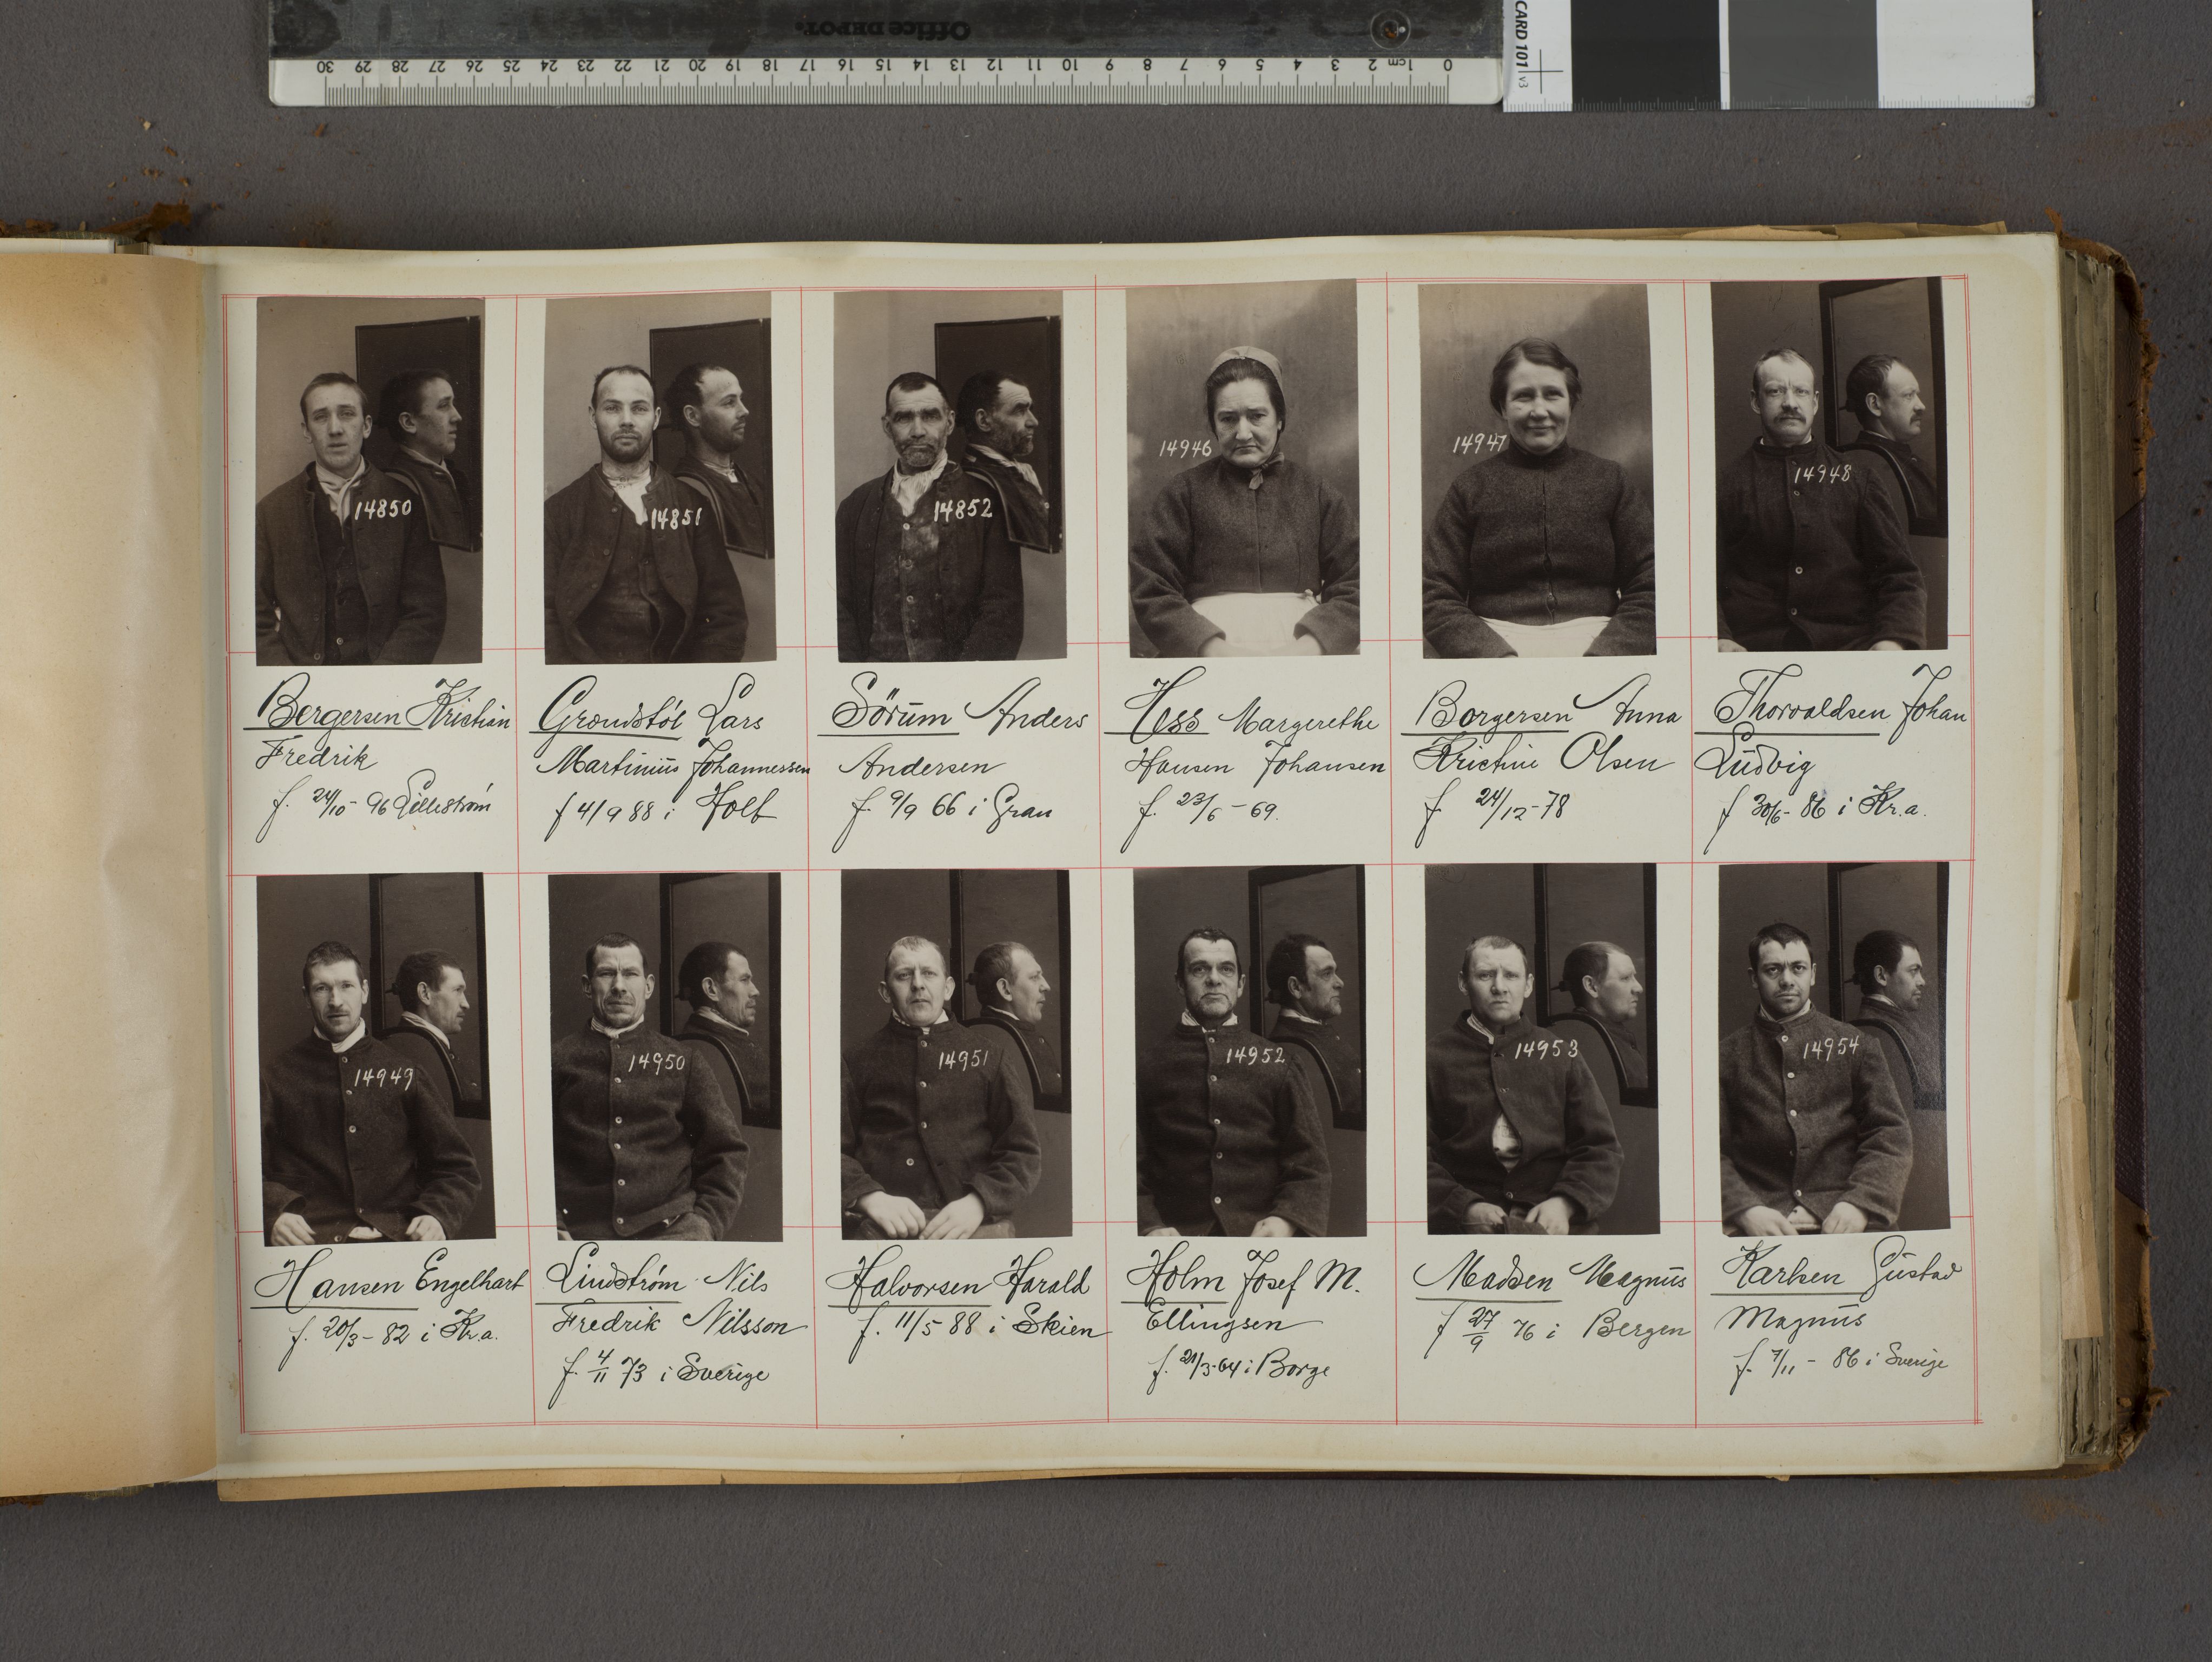 Office DEPOT.
30 29 28 27 26 25 24 23 22 21 20 19 18 17 16 15 14 13 12 11 10 9 8 7 6 5 4 3 2 1cm 0
CARD 101 v3
14850
14851
14852
14946
14947
14948
Bergersen Kristian
Fredrik
f. 24/10 - 96 Lillestrøm
Grøndstøl Lars
Martinius Johannessen
f 4/9 88 i Holt
Sörum Anders
Andersen
f. 9/9 66 i Gran
Hess Margerethe
Hansen Johansen
f. 23/6 - 69.
Borgersen Anna
Kristine Olsen
f 24/12 - 78
Thorvaldsen Johan
Ludvig
f 30/6 - 86 i Kr.a.
14949
14950
14951
14952
14953
14954
Hansen Engelhart
f. 20/3 - 82 i Kr.a.
Lindstrøm Nils
Fredrik Nilsson
f. 4/11 73 i Sverige
Halvorsen Harald
f. 11/5 88 i Skien
Holm Josef M.
Ellingsen
f. 21/3-64 i Borge
Madsen Magnus
f 27/9 76 i Bergen
Karlsen Gustav
Magnus
f. 7/11 - 86 i Sverige